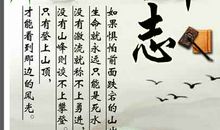 志
如果惧怕前面跌宕的山
生命就永远只能是死水
没有激流就称不上勇进，
没有山峰则谈不上攀登。
只有登上山顶，
才能看到那边的风光。